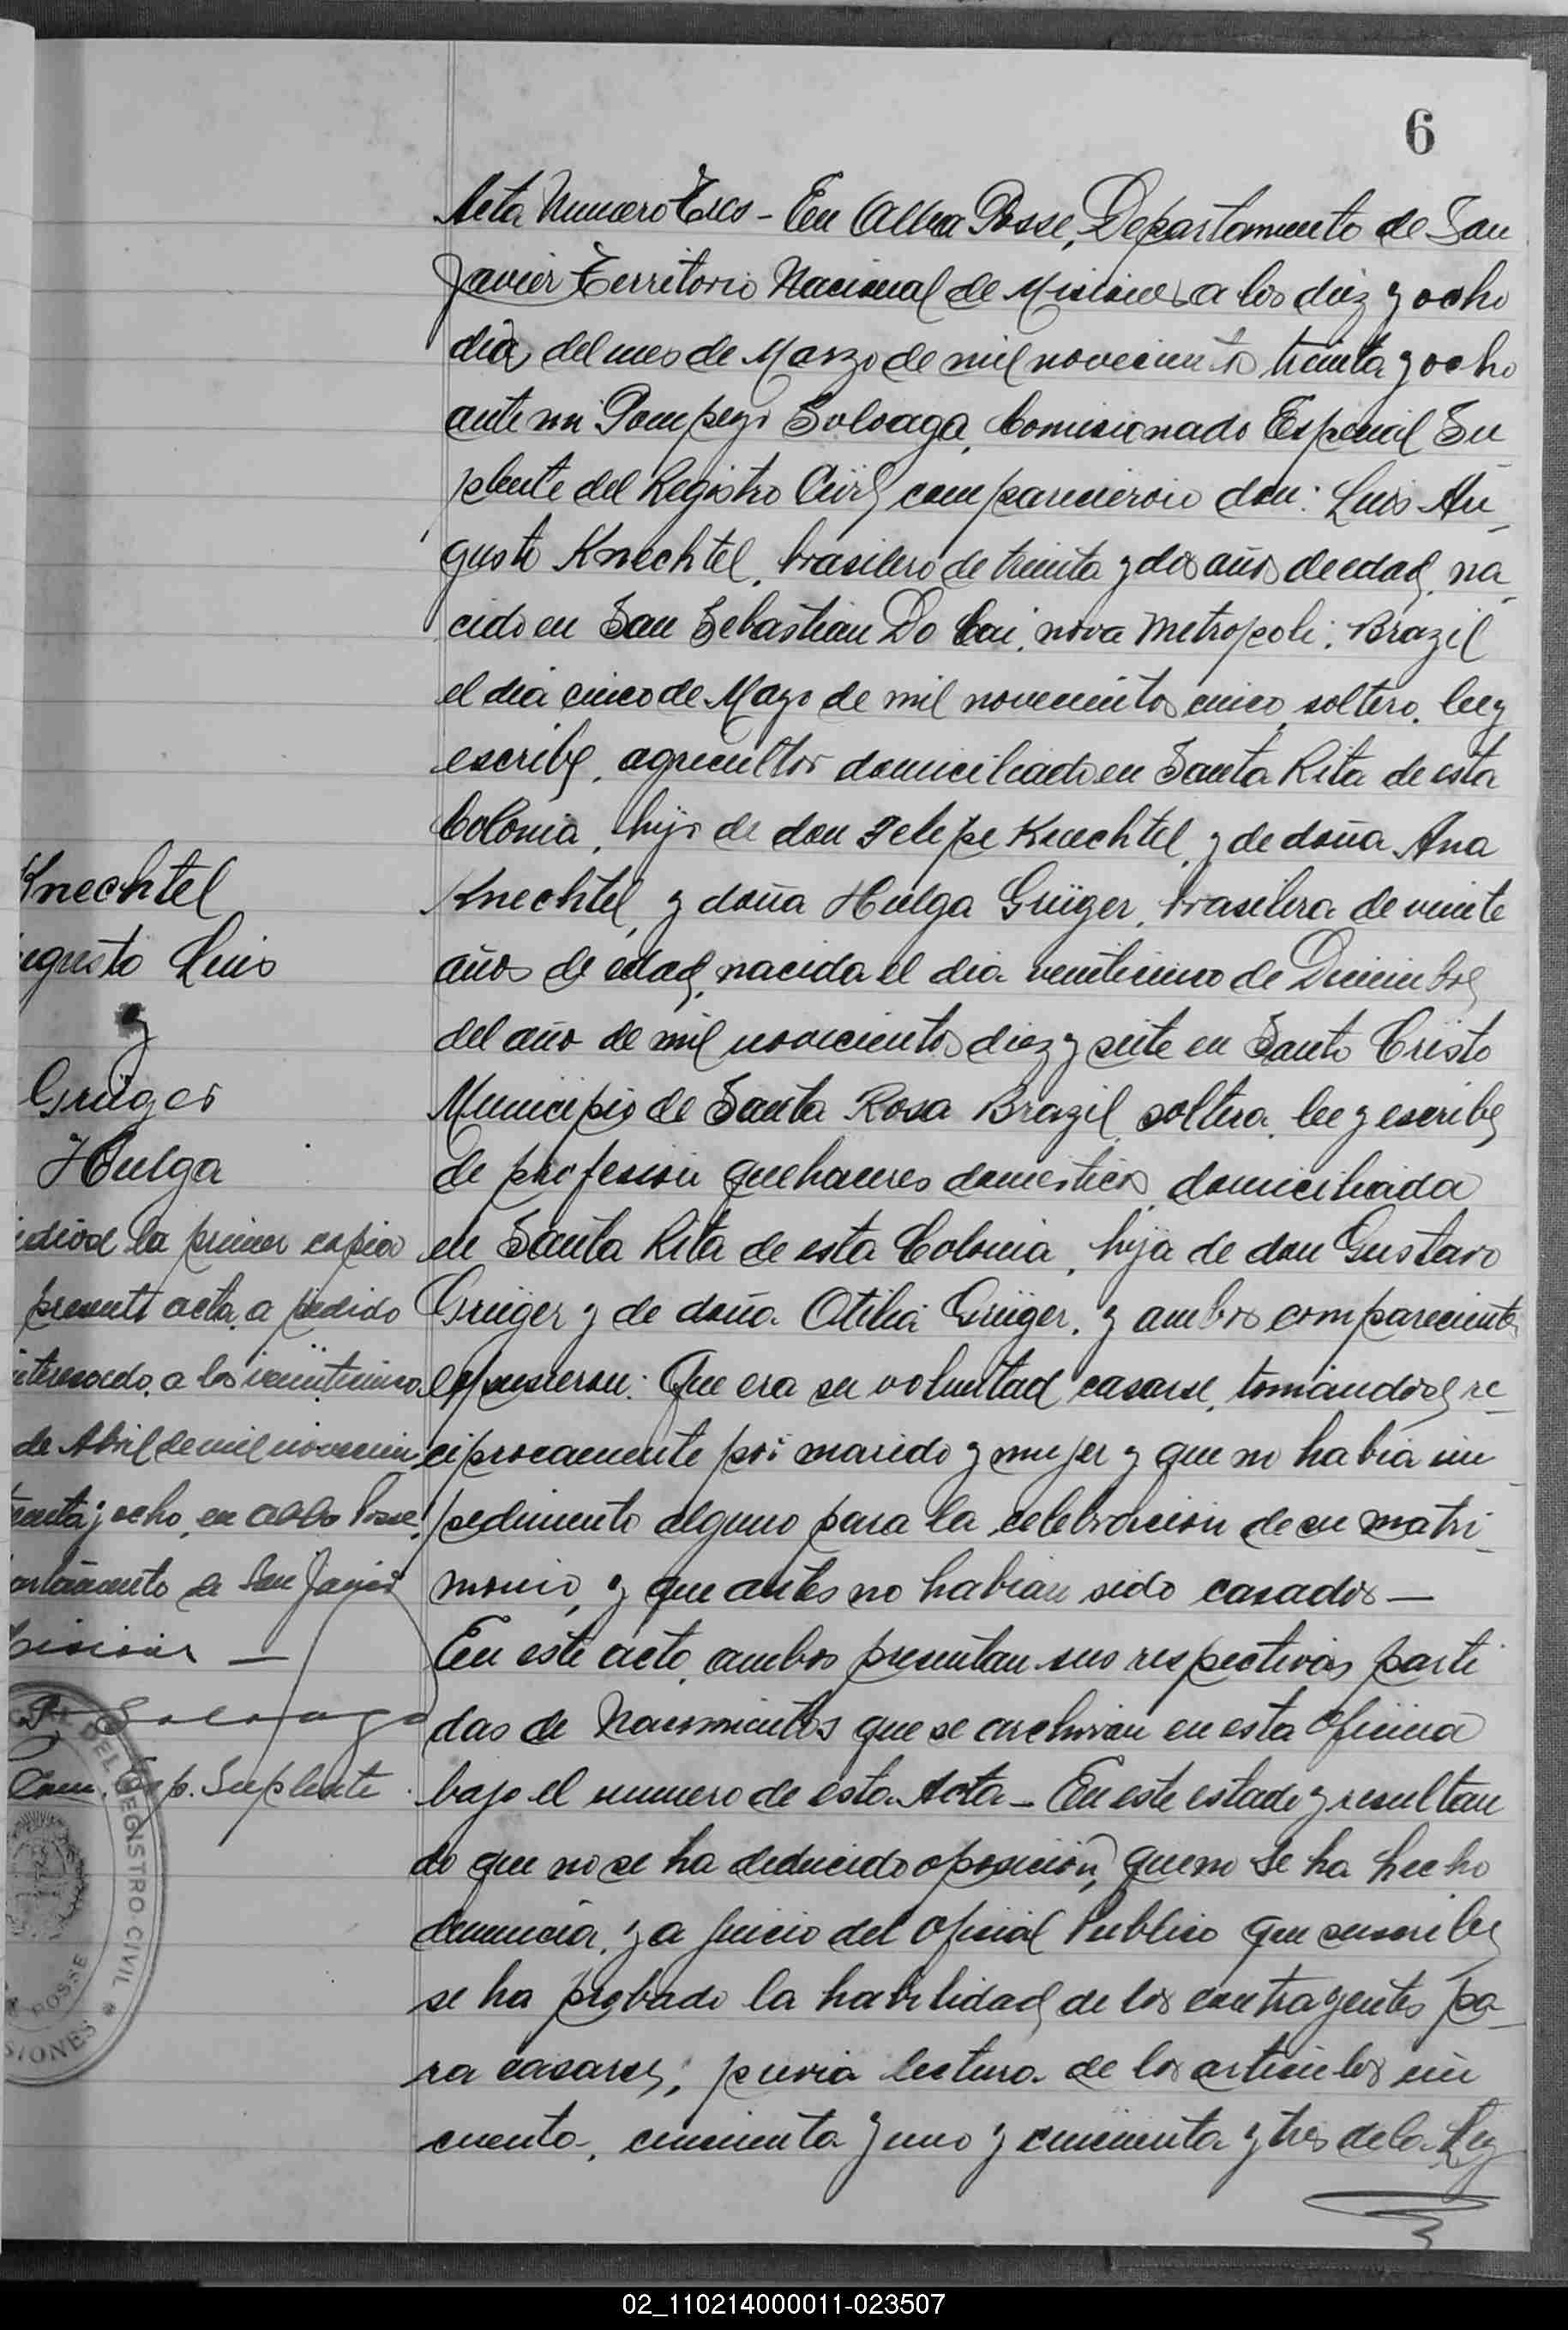 6
Acta Numero Tres - En Alba Posse, Departamento de San
Javier Territorio Nacional de Misiones a los diez y ocho
dia del mes de Marzo de mil novecientos treinta y ocho
ante mi Pompeyo Soloaga, Comisionado Especial Su_
plente del Registro Civil comparecieron don: Luis Au_
gusto Knechtel, brasilero de treinta y dos años de edad, na_
cido en San Sebastian Do Cai, nova Metropoli, Brazil
el dia cinco de Mayo de mil novecientos cinco, soltero, lee y
escribe, agricultor domiciliado en Santa Rita de esta
Colonia, hijo de don Felipe Knechtel, y de doña Ana
Knechtel, y doña Hulga Grüger, brasilera de veinte
años de edad, nacida el dia veinticinco de Diciembre
del año de mil novecientos diez y siete en Santo Cristo
Municipio de Santa Rosa Brazil, soltera, lee y escribe
de profesion quehaceres domesticos, domiciliada
en Santa Rita de esta Colonia, hija de don Gustavo
Grüger y de doña Otilia Grüger, y ambos comparecientes
expusieron: Que era su voluntad casarse, tomandose re_
ciprocamente por marido y mujer y que no habia im_
pedimento alguno para la celebracion de su matri_
monio, y que antes no habian sido casados —
En este acto, ambos presentan sus respectivas parti
das de Nacimientos que se archivan en esta oficina
bajo el numero de esta Acta - En este estado y resultan
do que no se ha deducido oposicion, que no se ha hecho
denuncia, y a juicio del oficial Publico que suscribe
se ha probado la habilidad de los contrayentes pa_
ra casarse, previa lectura de los articulos cin
cuenta, cincuenta y uno y cincuenta y tres de la Ley
Knechtel
ugusto Luis
y
Grüger
Hulga
la primer copia
presente acta, a pedido
interesado, a los veinticinco
de Abril de mil novecien
treinta y ocho, en Alba Posse,
artamento de San Javier
Misiones —
P. Soloaga
Com. Esp. Suplente
DEL REGISTRO CIVIL *
POSSE
SIONES
02_110214000011-023507